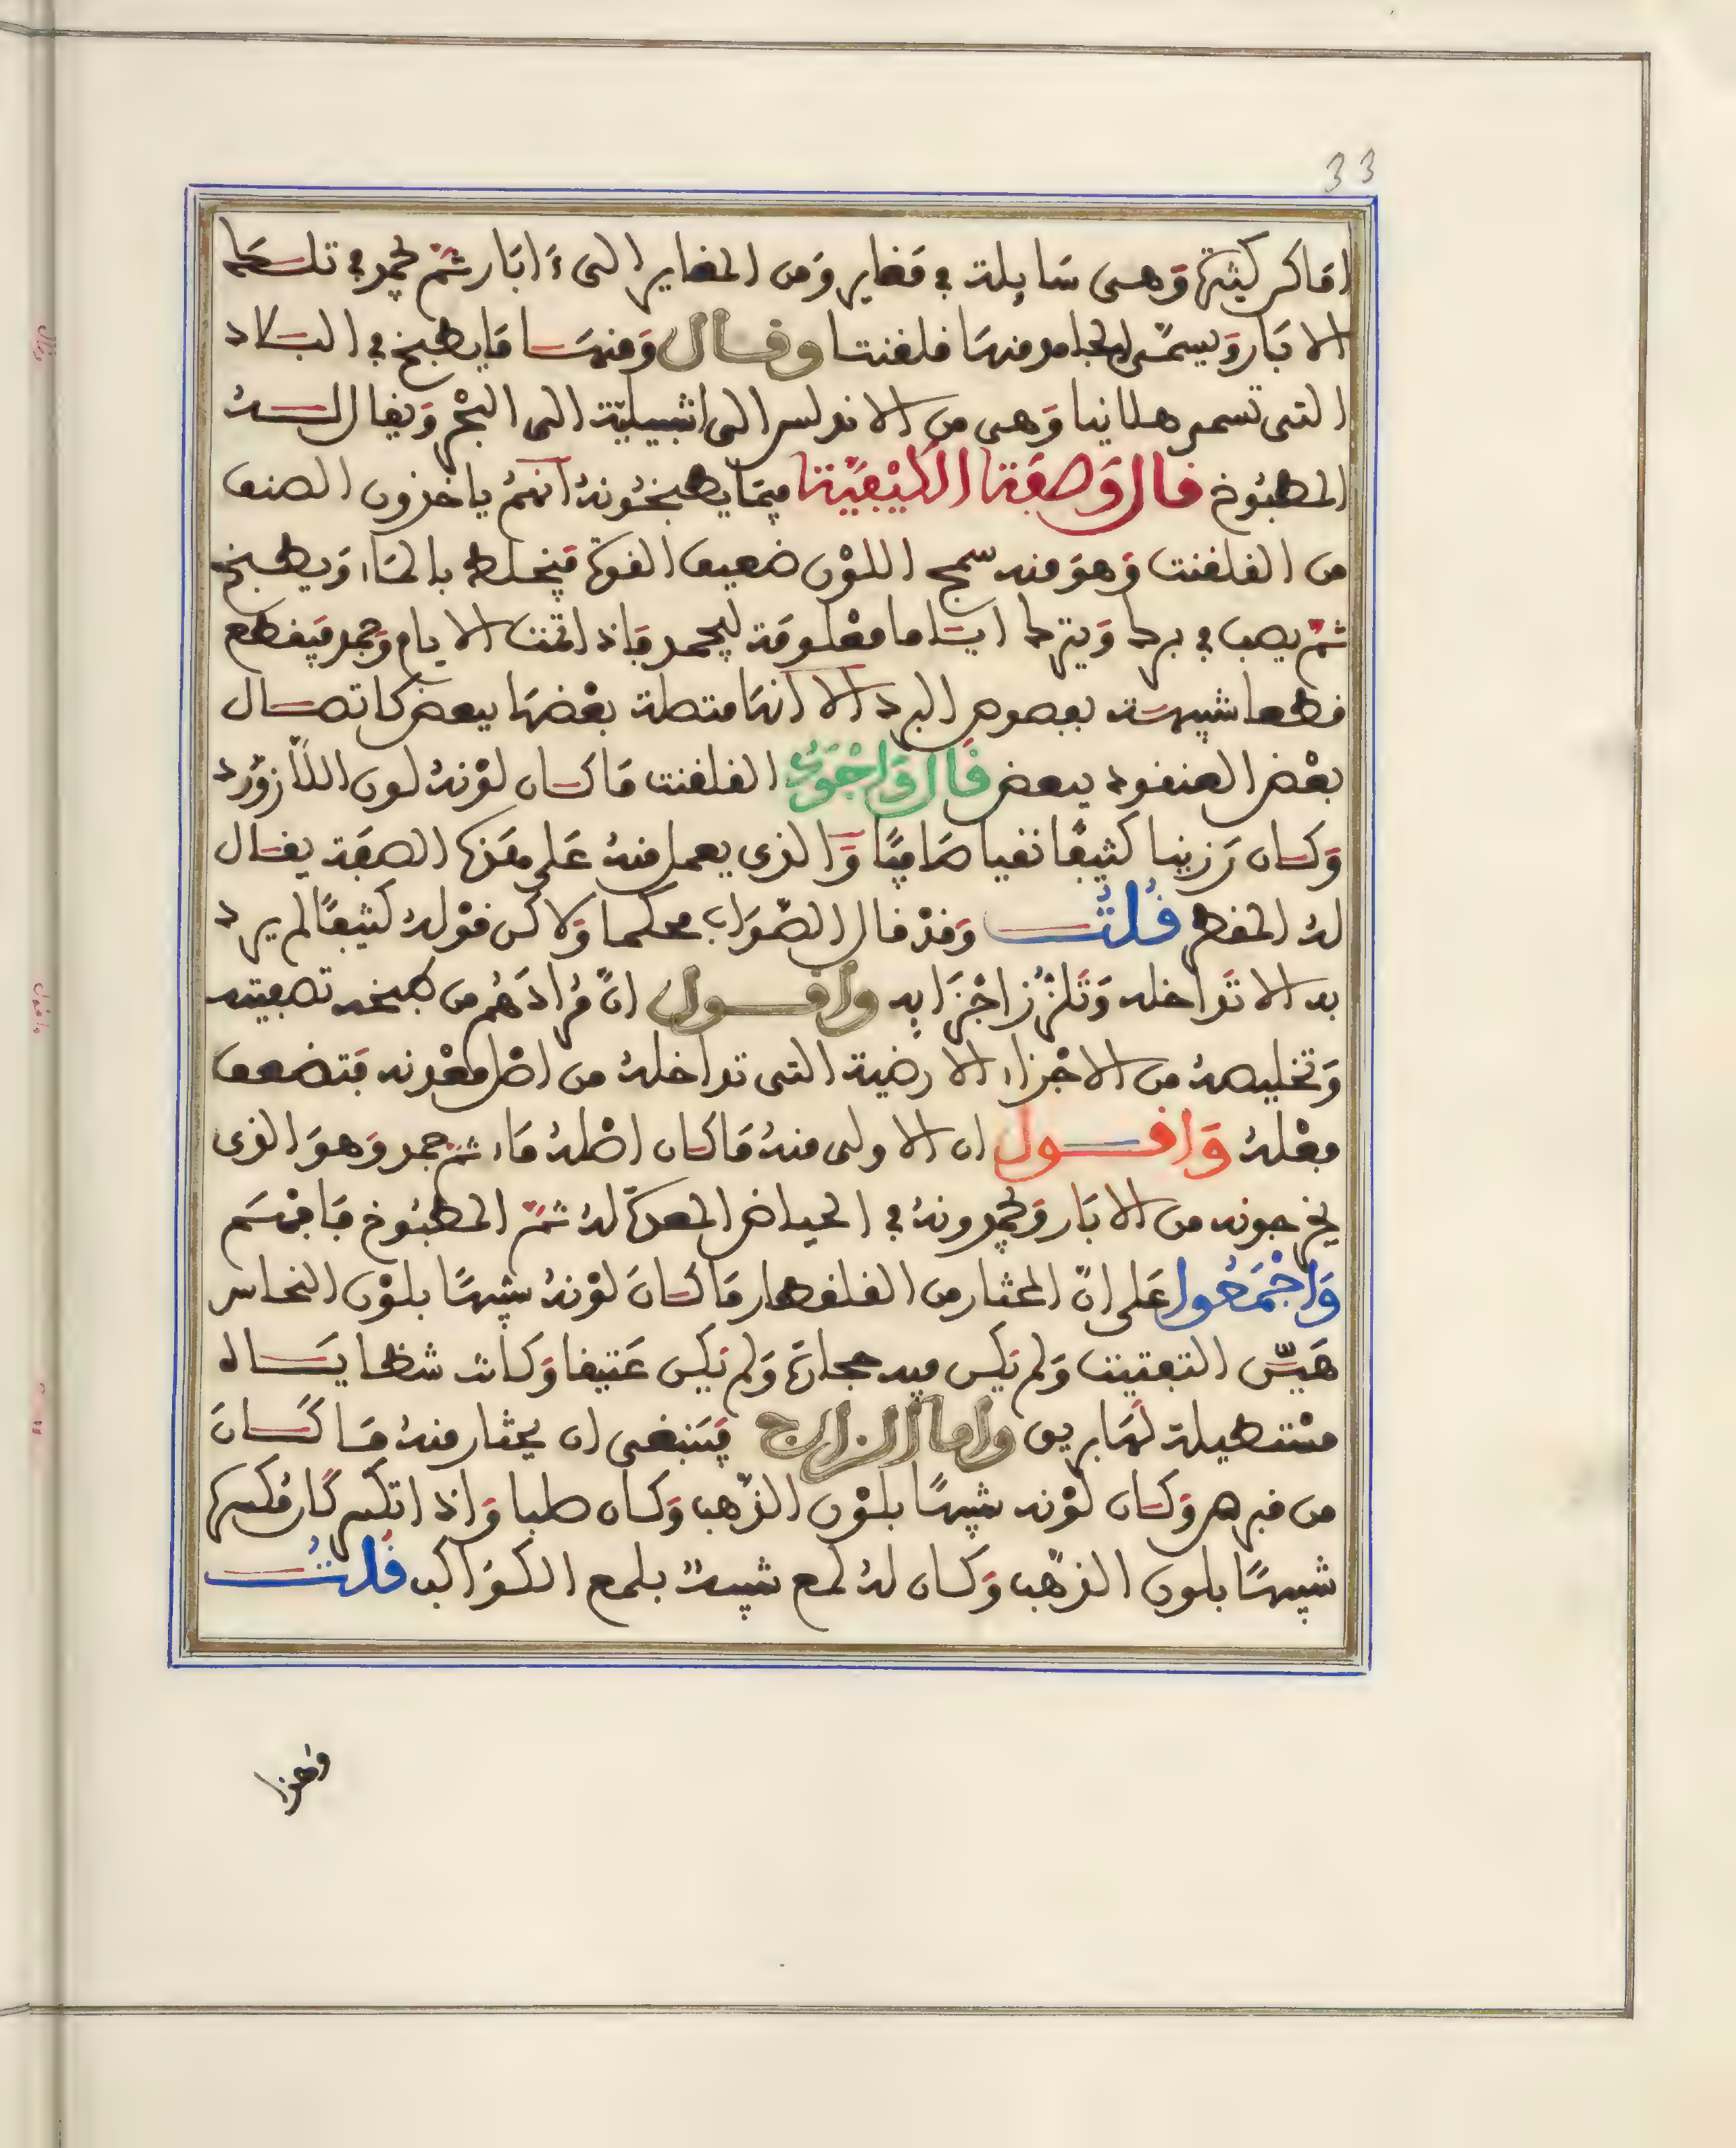 33
اماكن كثيرة وَهى سَايلة في مَغاير وَمن المغاير الى ءَابَار ثمّ تجمد في تلك
الابَار وَيسمّى الجامد منهَا قلقنت وقال وَمنهَا مَا يطبخ في البلاد
التى تسمى هلانيا وَهى من الاندلس الى اشبيلية الى البحْر وَيقال لهُ
المطبُوخ قال وَصفة الكيْفيّة فيمَا يطبخُونهُ انهمُ ياخذون الصنف
من القلقنت وَهوَ منه سمج اللوْن ضعيف القوة فيخلط بالمَاء وَيطبخ
ثمّ يصب في برك وَيترك ايّاما معْلومَة ليجمد فاذا تمت الايام وَجمد فيَقطع
قطعا شبيهَة بفصوص النرد الا انهَا متصلة بعْضهَا ببعض كاتصال
بعْض العنقود ببعض قَال وَاجْوَدُ القلقنت مَا كان لوْنهُ لون اللازوَرد
وَكان رَزينا كثيفًا نقيا صَافيًا وَالذى يعمل منهُ عَلى هَذه الصفَة يقال
لهُ المقطر قُلتُ وَقدْ قال الصّوَاب محكما وَلاكن قوْلهُ كثيفًا لم يرد
به الا تَداخله وَتَلزز اجْزَايه واقول انّ مُرادَهُم من طبخه تصفيته
وَتخليصهُ من الاجْزاء الارضية التى تداخلهُ من اصْل معْدنه فتضعف
فعْلهُ وَاقول ان الاولى منهُ مَا كان اصْلهُ مَاء ثمّ جمد وَهوَ الذى
يخرجونه من الابَار وَيجمدونهُ في الحياض المعدة لهُ ثمّ المطبُوخ فَافهَم
وَاجْمَعُوا عَلى انّ المختار من القلقطار مَا كانَ لوْنهُ شبيهًا بلوْن النحاس
هَيّن التفتيت وَلم يَكن فيه حجارة وَلم يَكن عَتيقا وَكانت شظايَاه
مسْتطيلة لهَا بريق واما الزاج فيَنبغى ان يختار منهُ مَا كَانَ
من قبرص وَكان لوْنه شبيهًا بلوْن الذّهب وَكان صلبا وَاذا انكسر كان مُكسره
شبيهًا بلون الذّهب وَكان لهُ لمع شبيهٌ بلمع الكوَاكب قُلتُ
وهذا